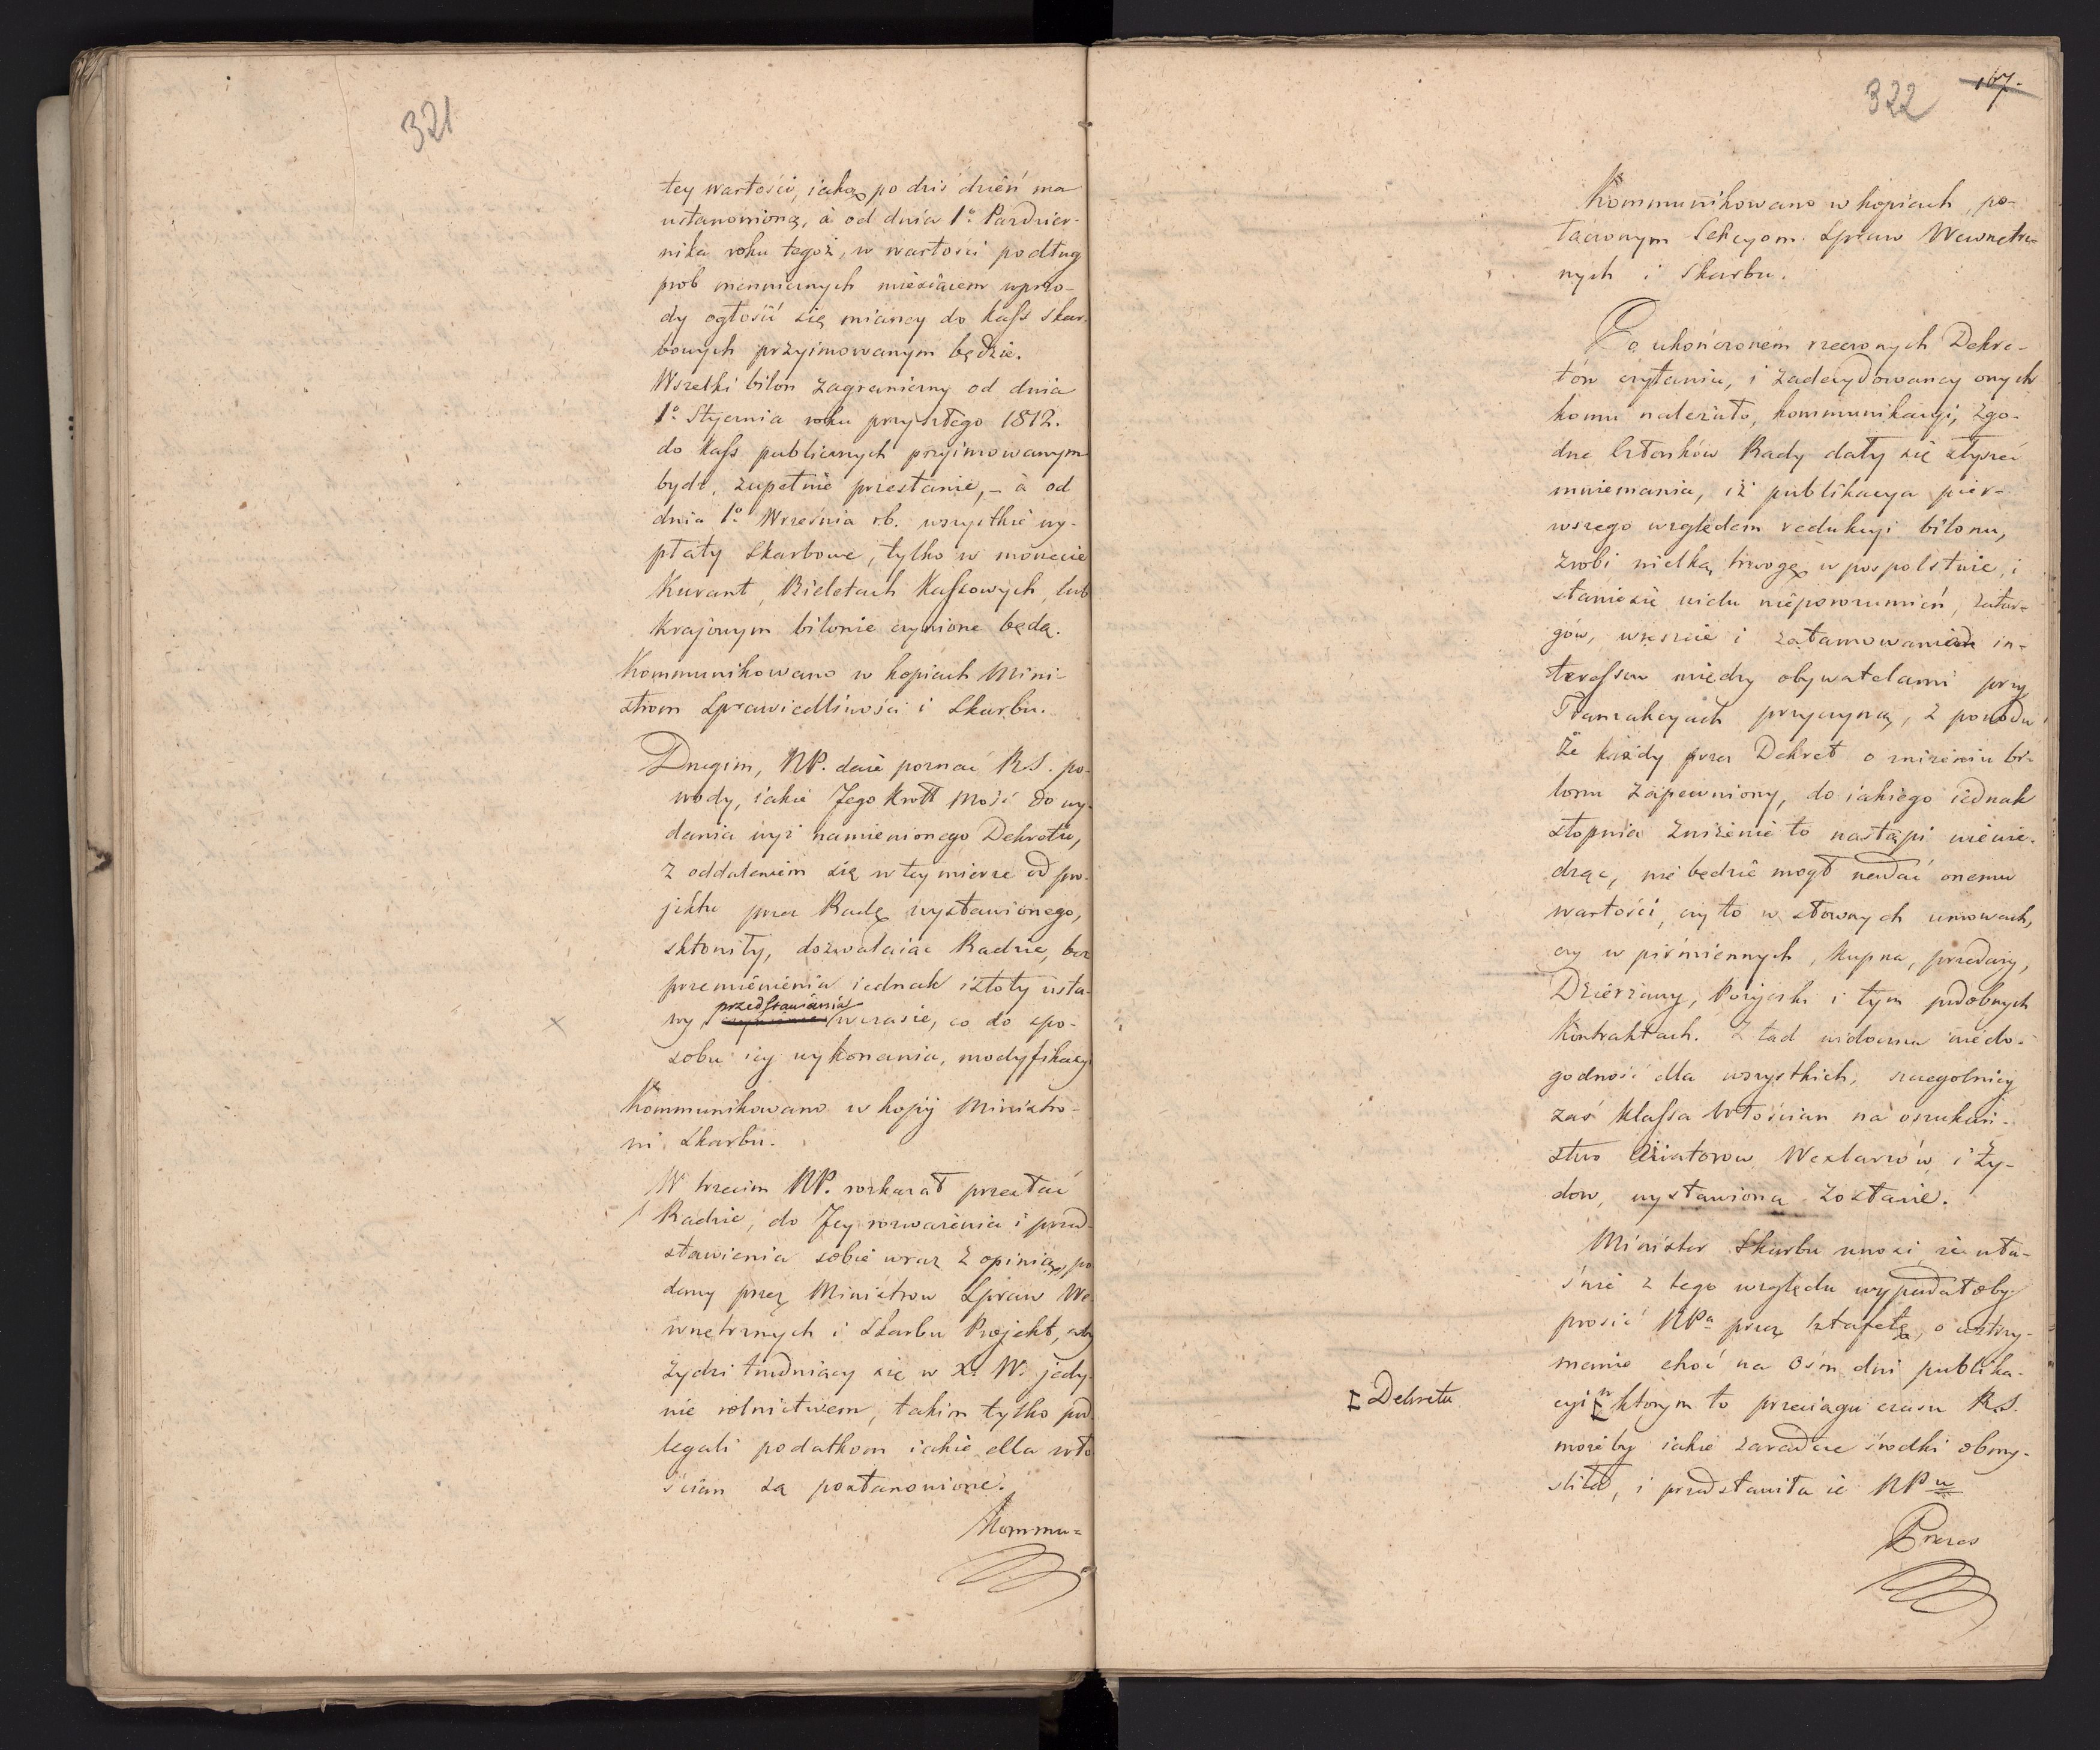 321
tey wartości, iaką po dziś dzień ma
ustanowioną, à od dnia 1º Paździer-
nika roku tegoż, w wartości podług
prob mennicznych miesiącem wprzo-
dy ogłosić się maiącey do Kass skar-
bowych przyimowanym będzie.
Wszelki bilon zagraniczny od dnia
1º Stycznia roku przyszłego 1812.
do Kass publicznych przyimowanym
bydź, zupełnie przestanie, – à od
dnia 1º Września r.b. wszystkie wy-
płaty Skarbowe, tylko w monecie
Kurant, Biletach Kassowych, lub
Krajowym bilonie czynione będą.
Kommunikowano w kopiach Mini-
strom Sprawiedliwości i Skarbu.
Drugim, NP. daie poznać R.S. po-
wody, iakie Jego Król Mość do wy-
dania wyż namienionego Dekretu,
z oddaleniem się w tey mierze od pro-
jektu przez Radę wystawionego,
skłoniły, dozwalaiąc Radzie, bez
przemienienia iednak istoty usta-
wy, przedstawiania w czasie, co do spo-
sobu iey wykonania, modyfikacyi
Kommunikowano w kopij Ministro-
wi Skarbu.
W trzecim NP. rozkazał przesłać
Radzie, do Jey rozważenia i przed-
stawienia sobie wraz z opinią, po
dany przez Ministrow Spraw We-
wnętrznych i Skarbu Projekt, aby
żydzi trudniący się w X. W. jedy-
nie rolnictwem, takim tylko pod-
legali podatkom iakie dla wło
ścian są postanowione.
Kommu=
322
167.
Kommunikowano w kopiach, po-
łączonym Sekcyom Spraw Wewnętrz-
nych i Skarbu.
Po ukończonem rzeczonych Dekre-
tów czytaniu, i zadecydowaney onych
komu należało, kommunikacyi, zgo-
dne Członków Rady dały się słyszeć
mniemania, iż publikacya pier-
wszego względem redukcyi bilonu,
zrobi wielką trwogę w pospolstwie, i
stanie się wielu nieporozumień, zatar-
gów, wreszcie i zatamowania in-
teressow między obywatelami przy
Tranzakcyach przyczyną, z powodu
Że każdy przez Dekret o zniżeniu bi-
lonu zapewniony, do iakiego iednak
stopnia zniżenie to nastąpi niewie-
dząc, nie będzie mogł nadać onemu
wartości, czy to w słownych umowach,
czy w piśmiennych, Kupna, przedaży,
Dzierżawy, Pożyczki i tym podobnych
Kontraktach. Z tąd widoczna niedo-
godność dla wszystkich, szczegolniey
zaś Klassa Włościan na oszukań-
stwo Ażiatorow Wexlarzów i Ży-
dow, wystawiona zostanie.
Minister Skarbu wnosi że wła-
śnie z tego względu wypadałoby
prosić NPª przez sztafetę, o wstrzy-
manie choć na ośm dni publika-
cyi [w ktorym to przeciągu czasu R.S.
[Dekretu
możeby iakie zaradcze środki obmy-
śliła, i przedstawiła ie NPu
Prezes